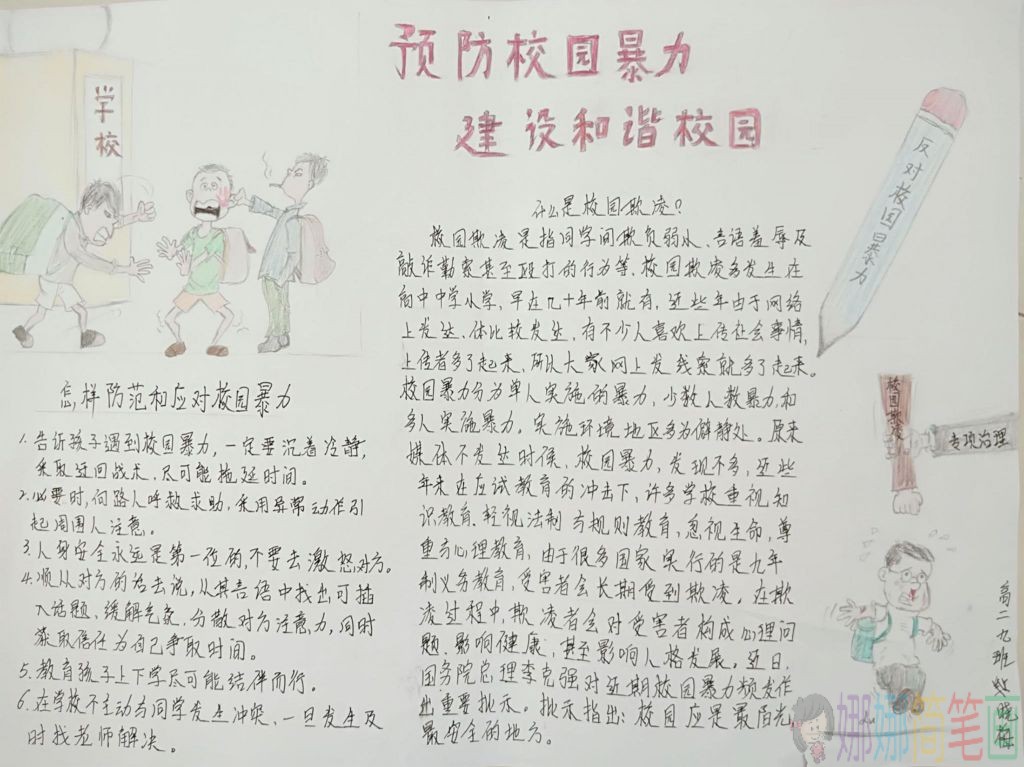 预防校园暴力
建设和谐校园
学校
反对校园暴力
什么是校园欺凌?
校园欺凌是指同学间欺负弱小、言语羞辱及
敲诈勒索甚至殴打的行为等、校园欺凌多发生在
初中中学小学,早在几十年前就有,近些年由于网络
上发达、体比较发达,有不少人喜欢上传社会事情,
上传者多了起来,所以大家网上发现案就多了起来。
校园暴力分为单人实施的暴力,少数人数暴力,和
多人实施暴力。实施环境地区多为僻静处。原来
媒体不发达时候、校园暴力,发现不多,近些
年来在应试教育的冲击下,许多学校重视知
识教育、轻视法制与规则教育,忽视生命,尊
重与心理教育,由于很多国家实行的是九年
制义务教育,受害者会长期受到欺凌。在欺
凌过程中欺凌者会对受害者构成心理问
题、影响健康;甚至影响人格发展。近日,
国务院总理李克强对近期校园暴力频发作
出重要批示。批示指出:校园应是最阳光,
最安全的地方。
怎样防范和应对校园暴力
1.告诉孩子遇到校园暴力,一定要沉着冷静,
采取迂回战术,尽可能拖延时间。
2.必要时,向路人呼救求助,采用异常动作引
起周围人注意。
3.人身安全永远是第一位的,不要去激怒对方。
4.顺从对方的话去说,从其言语中找出可插
入话题、缓解气氛,分散对方注意力,同时
获取信任为自己争取时间。
5.教育孩子上下学尽可能结伴而行。
6.在学校不主动与同学发生冲突,一旦发生及
时找老师解决。
校园欺凌
专项治理
高二九班
晓梅
娜娜简笔画